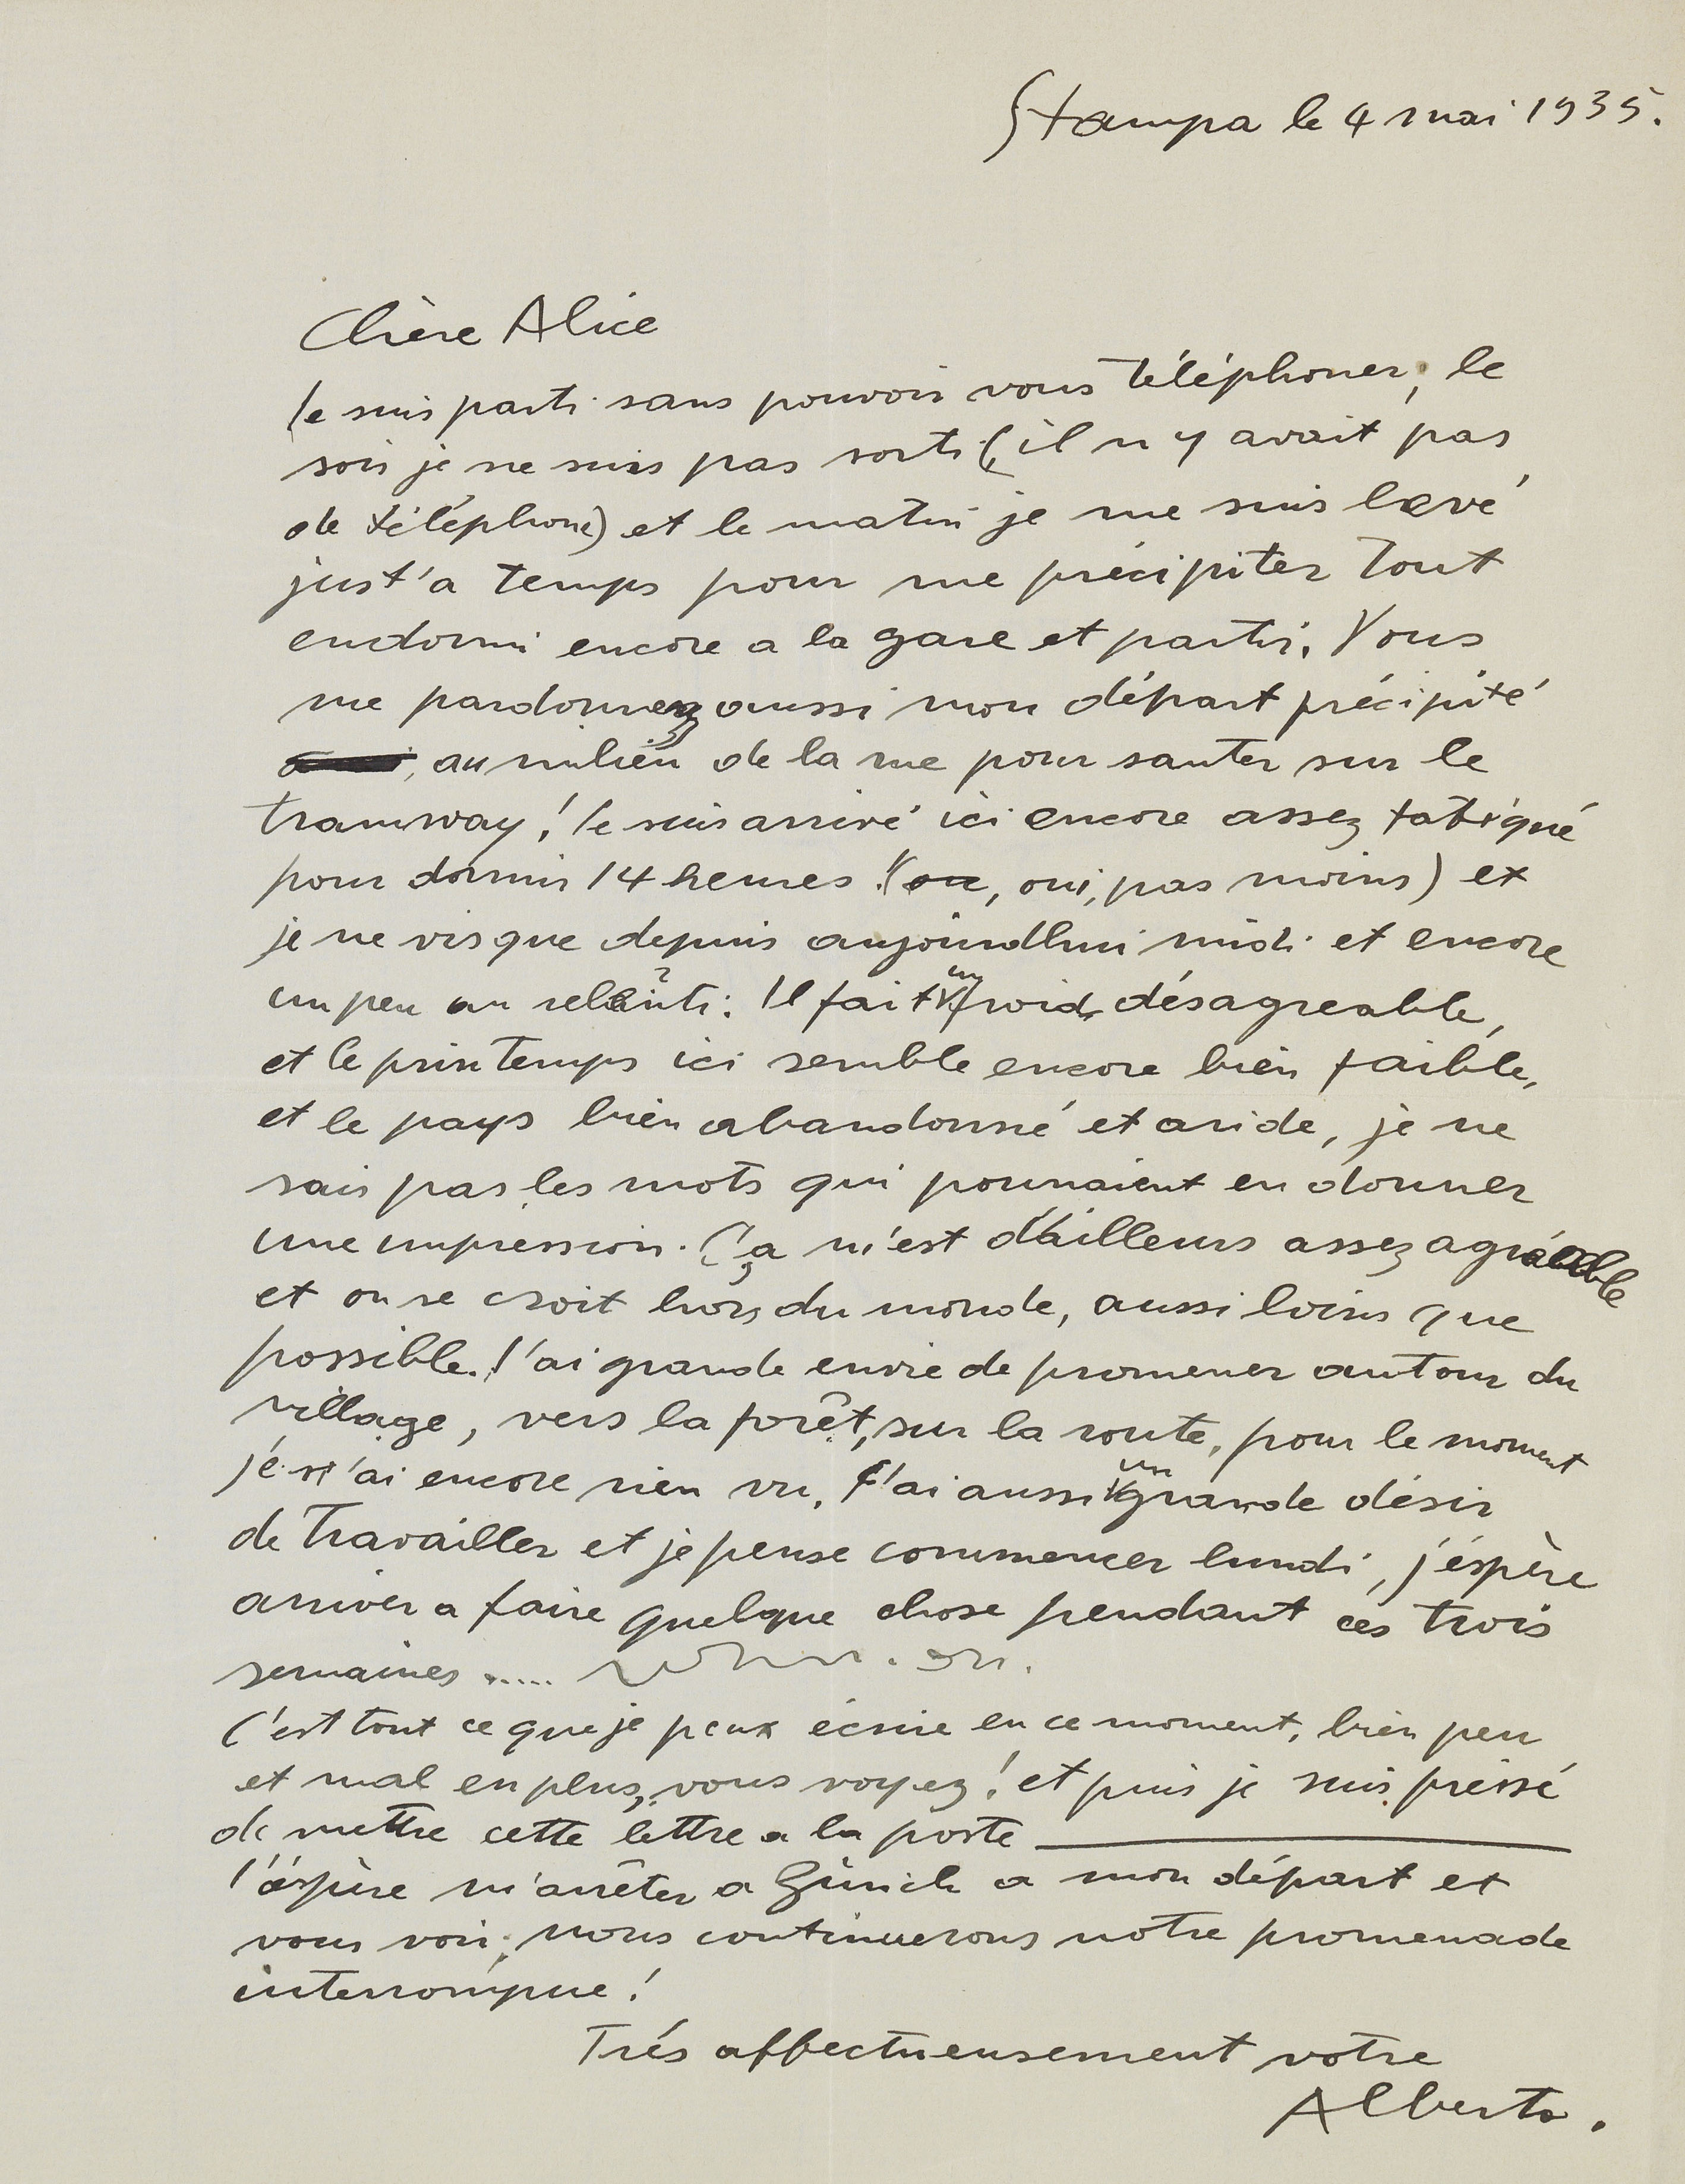 Stampa le 4 mai 1935.
Chère Alice
Je suis parti sans pouvoir vous téléphoner, le
soir je ne suis pas sorti (il n y avait pas
de téléphone) et le matin je me suis levé
just'a temps pour me précipiter tout
endormi encore a la gare et partir. Vous
me pardonnez aussi mon départ précipité
au milieu de la rue pour sauter sur le
tramway! Je suis arrivé ici encore assez fatigué
pour dormir 14 heures! (ou, oui, pas moins) et
je ne vis que depuis aujourdhui midi et encore
un peu au relenti: Il fait un froid désagreable,
et le printemps ici semble encore bien faible,
et le pays bien abandonné et aride, je ne
sais pas les mots qui pourraient en donner
une impression. Ça m'est d'ailleurs assez agréable
et on se croit hors du monde, aussi loins que
possible. J'ai grande envie de promener autour du
village, vers la forêt, sur la route, pour le moment
je n'ai encore rien vu. J'ai aussi un grande désir
de travailler et je pense commencer lundi, j'éspère
arriver a faire quelque chose pendant ces trois
semaines .....
C'est tout ce que je peux écrire en ce moment, bien peu
et mal en plus, vous voyez! et puis je suis préssé
de mettre cette lettre a la poste
J'éspère m'arrêter a Zürich a mon départ et
vous voir, nous continuerons notre promenade
interrompue!
Trés affectueusement votre
Alberto.